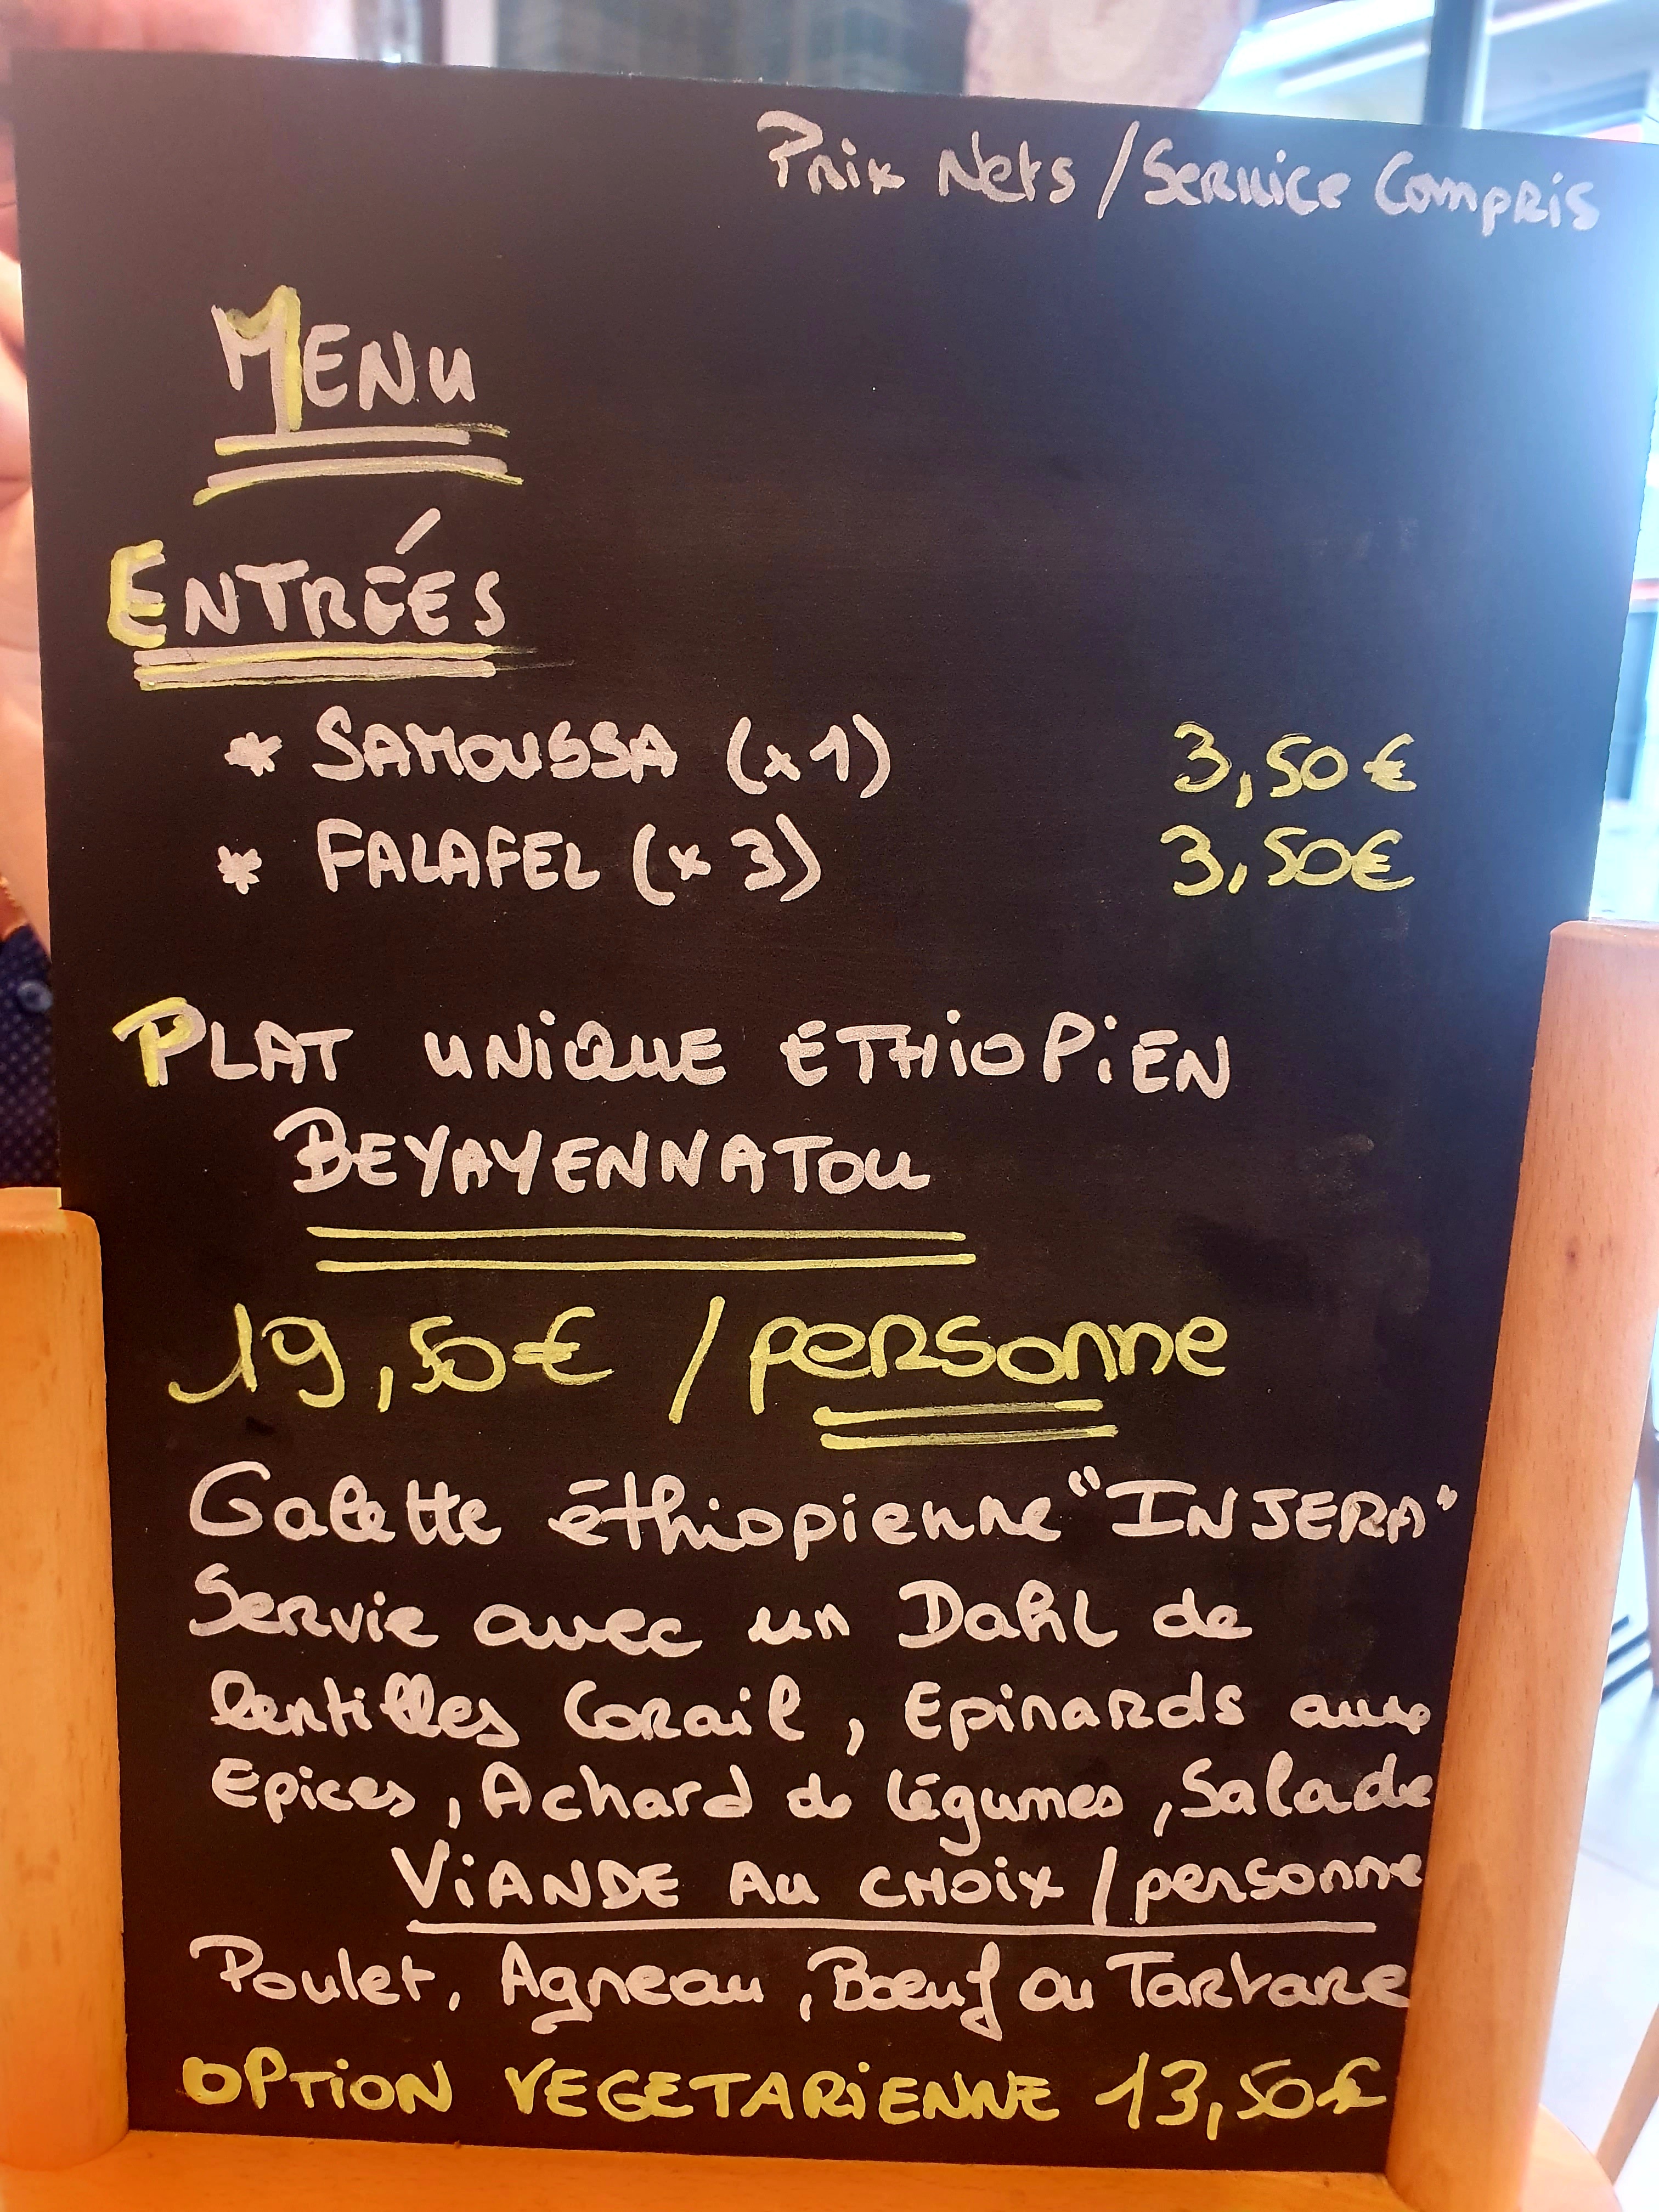 Prix Nets / Service Compris
MENU
ENTRÉES
* SAMOUSSA (x1) 3,50€
* FALAFEL (x3) 3,50€
PLAT UNIQUE ÉTHIOPIEN
BEYAYENNATOU
19,50€ / personne
Galette éthiopienne "INJERA"
Servie avec un Dahl de
lentilles Corail, Epinards aux
Epices, Achard de légumes, Salade
VIANDE AU CHOIX / personne
Poulet, Agneau, Bœuf ou Tartare
OPTION VEGETARIENNE 13,50€